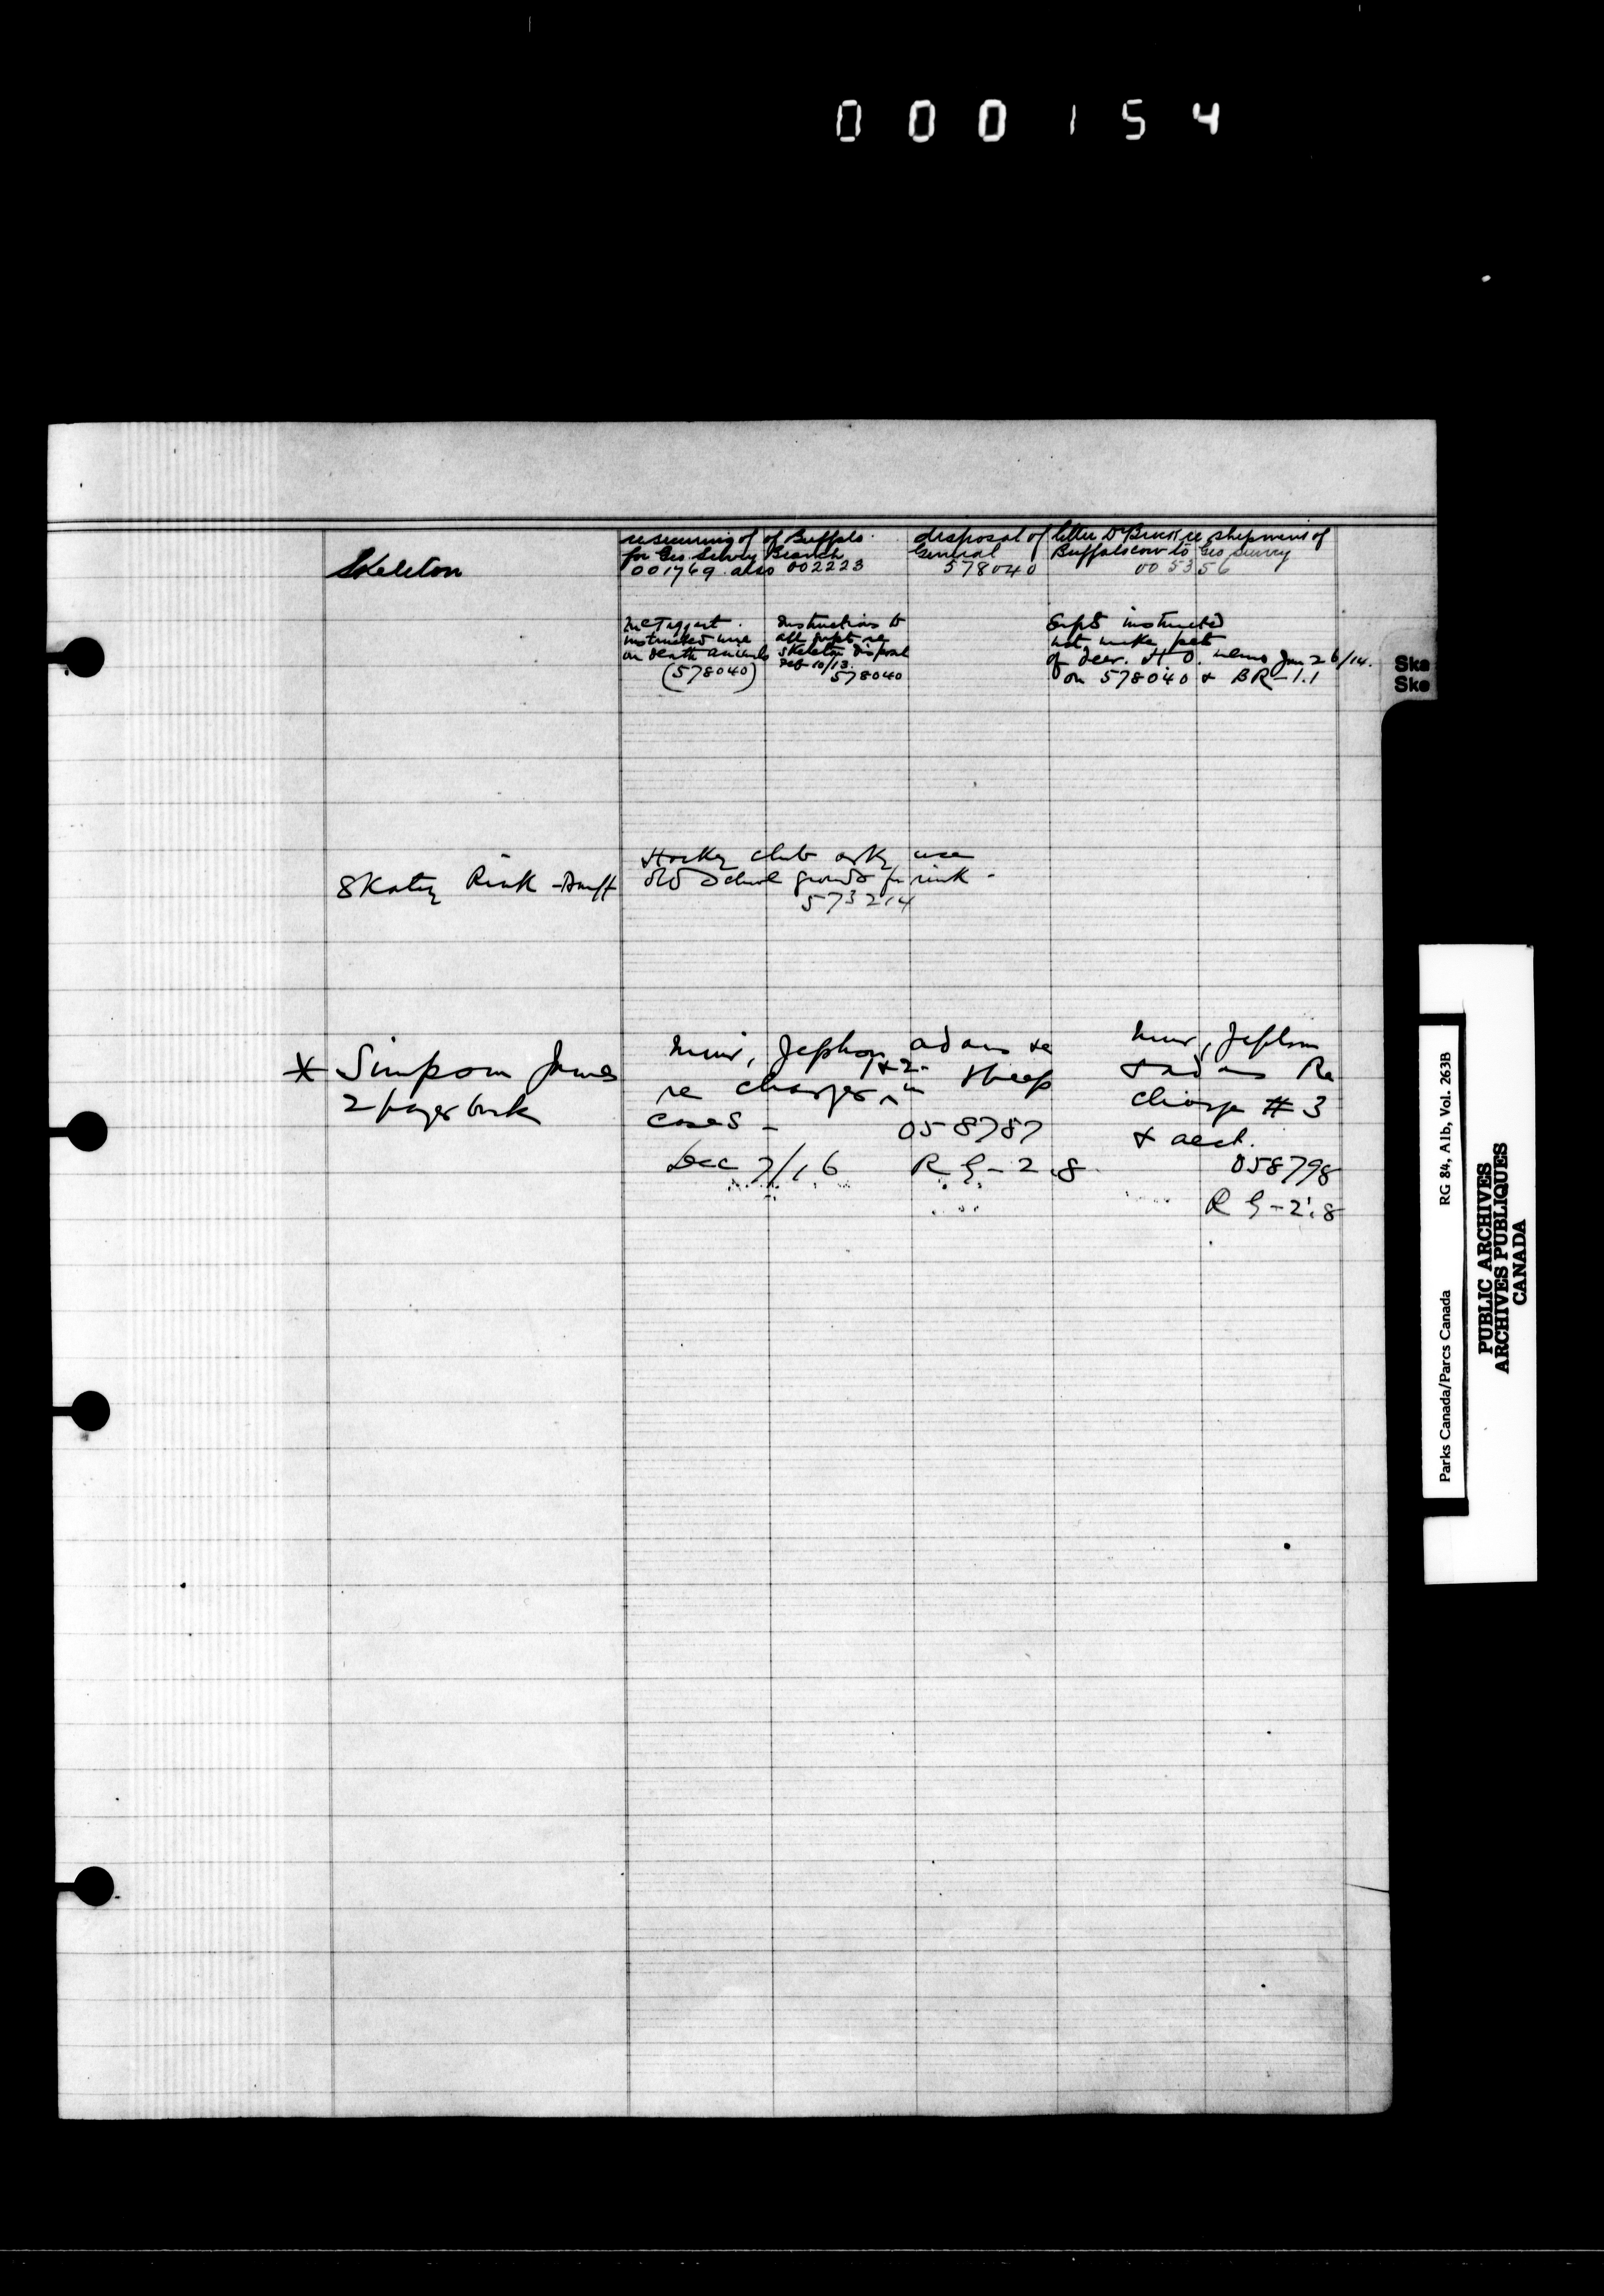 000154
Skeleton
re securing of of Buffalo
for Geo Survey Branch
001769 also 002223
disposal of
General
578040
letter Dr re shipment of
Buffalo cow to Geo Survey
005356
McTaggart
instructed wire
on death animals
(578040)
Instructions to
all supt re
skeleton disposal
Feb 10/13.
578040
Supt instructed
not make pets
of deer. H.O. memo Jan 26/14.
on 578040 & BR-1.1
Ska
Ske
Skatg Rink - Banff
Hockey club ask use
old School grounds for rink -
573214
* Simpson James
2 pages back
Muir, Jephson, Adams re
1 & 2.
re charges ^ in sheep
cases - 058787
Dec 7/16 RG-2.8
Muir, Jephson
& Adams Re
charge #3
& acct.
058798
RG-2.8
Parks Canada/Parcs Canada RG 84, A1b, Vol. 263B
PUBLIC ARCHIVES
ARCHIVES PUBLIQUES
CANADA